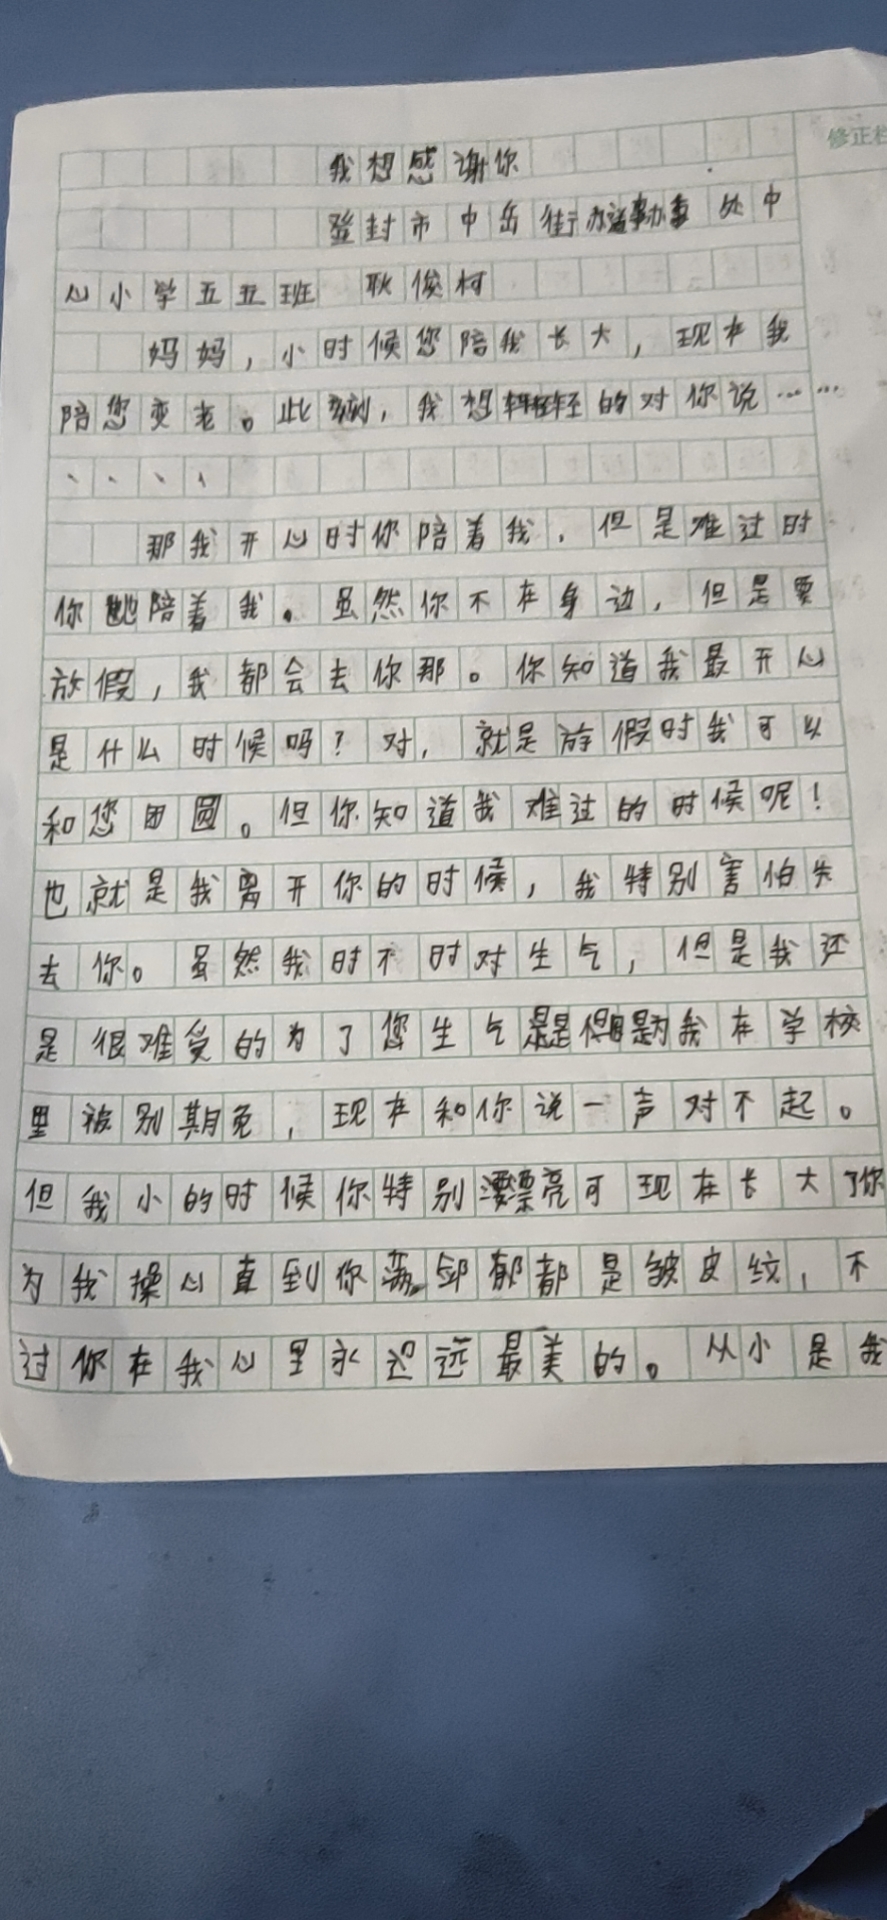 修正栏
我想感谢你
登封市中岳街办事处中
心小学五五班 耿俊柯
妈妈，小时候您陪我长大，现在我
陪您变老。此刻，我想轻轻的对你说……
、、、、
那我开心时你陪着我，但是难过时
你也陪着我。虽然你不在身边，但是要
放假，我都会去你那。你知道我最开心
是什么时候吗？对，就是放假时我可以
和您团圆。但你知道我难过的时候呢！
也就是我离开你的时候，我特别害怕失
去你。虽然我时不时对生气，但是我还
是很难受的为了您生气是因为我在学校
里被别期免，现在和你说一声对不起。
但我小的时候你特别漂亮可现在长大了你
为我操心直到你都是皱皮纹，不
过你在我心里永远最美的。从小是我